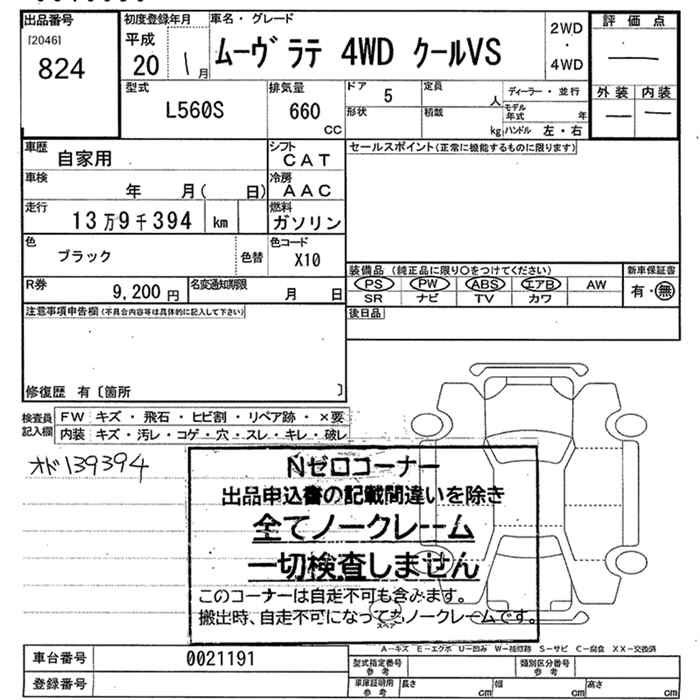 出品番号
[2046]
824
初度登録年月
平成
20 1月
車名・グレード
ムーヴ ラテ 4WD クールVS
2WD
・
4WD
評価点
—
外装 内装
— —
型式
L560S
排気量
660
CC
ドア 5
定員
人
ディーラー・並行
形状
積載
kg
モデル年式 年
ハンドル 左・右
車歴
自家用
シフト
CAT
セールスポイント(正常に機能するものに限ります)
車検
年 月( 日)
冷房
AAC
走行
13万9千394 km
燃料
ガソリン
色
ブラック
色替
色コード
X10
装備品(純正品に限り○をつけてください)
新車保証書
PS PW ABS エアB AW
SR ナビ TV カワ
有・無
R券
9,200円
名変通知期限
月 日
後日品
注意事項申告欄(不具合内容等は具体的に記入して下さい)
修復歴 有〔箇所 〕
検査員記入欄
FW キズ・飛石・ヒビ割・リペア跡・×要
内装 キズ・汚レ・コゲ・穴・スレ・キレ・破レ
オド139394
Nゼロコーナー
出品申込書の記載間違いを除き
全てノークレーム
一切検査しません
このコーナーは自走不可も含みます。
搬出時、自走不可になってもノークレームです。
スペア
A−キズ E−エクボ U−凹み W−補修跡 S−サビ C−腐食 XX−交換済
車台番号
0021191
型式指定番号
参考
類別区分番号
参考
登録番号
車庫証明用
参考
長さ cm
幅 cm
高さ cm